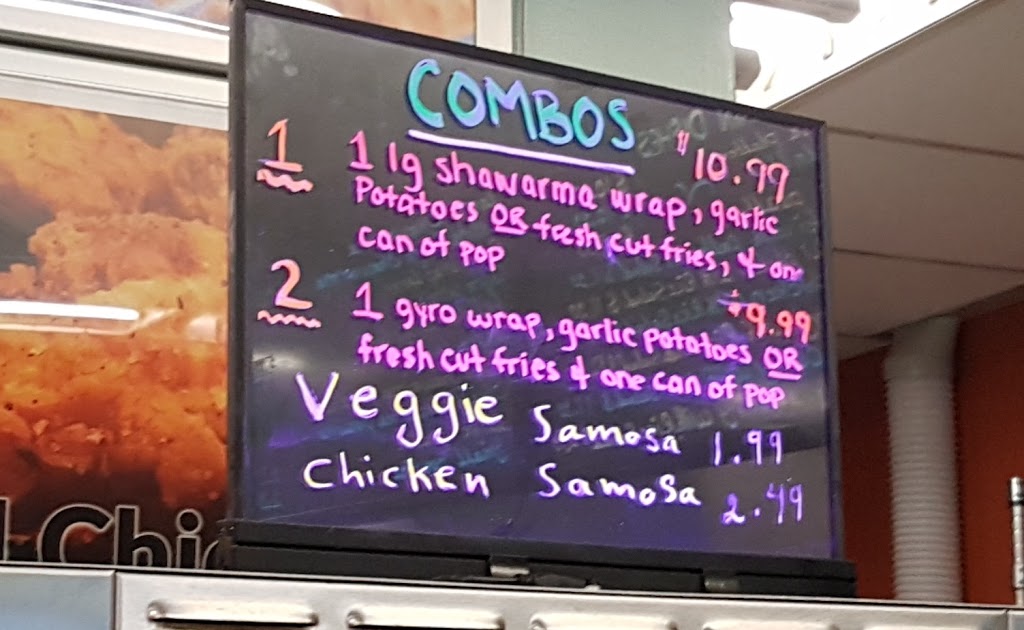 COMBOS
1 1 lg shawarma wrap, garlic $10.99
Potatoes OR fresh cut fries, & one
can of pop
2 1 gyro wrap, garlic potatoes OR $9.99
fresh cut fries & one can of pop
Veggie Samosa 1.99
Chicken Samosa 2.49
Chi